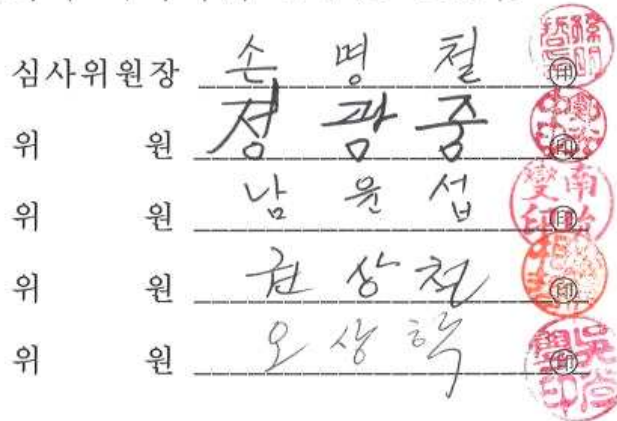 심사위원장 손 명 철 ㊞
위 원 정 광 중 ㊞
위 원 남 윤 섭 ㊞
위 원 권 상 철 ㊞
위 원 오 상 학 ㊞